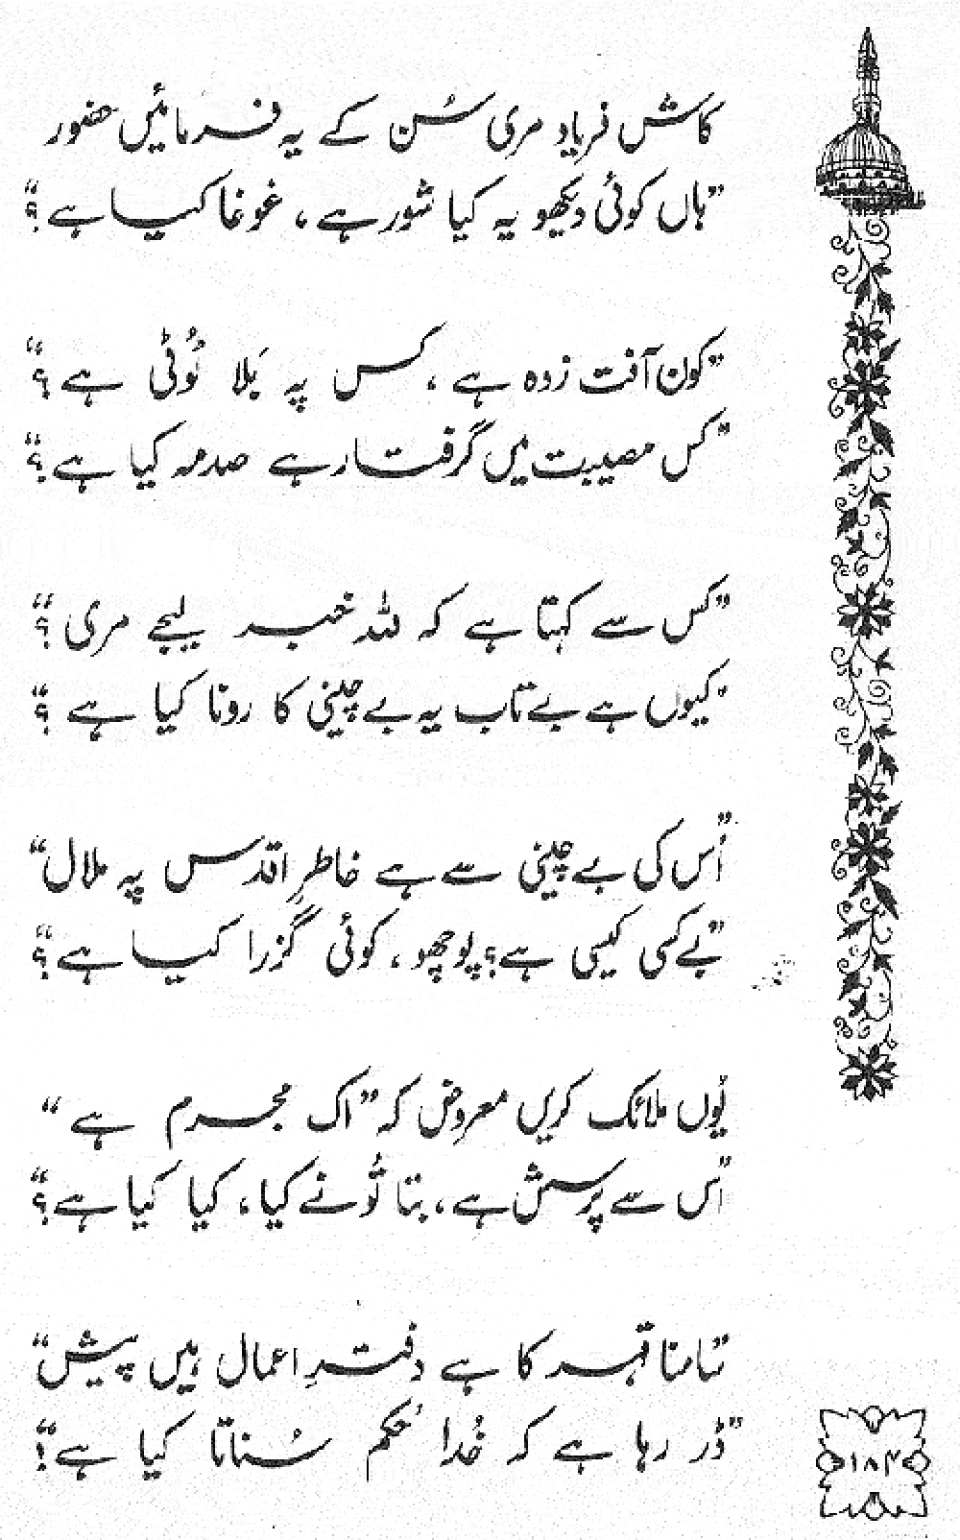 کاش فریاد مری سُن کے یہ فرمائیں حضور
”ہاں کوئی دیکھو یہ کیا شور ہے ، غوغا کیا ہے ؟“
”کون آفت زدہ ہے ، کس پہ بَلا ٹُوٹی ہے ؟“
”کس مصیبت میں گرفتار ہے صدمہ کیا ہے ؟“
”کس سے کہتا ہے کہ للہ خبر لیجے مری ؟“
”کیوں ہے بے تاب یہ بے چینی کا رونا کیا ہے ؟“
”اُس کی بے چینی سے ہے خاطرِ اقدس پہ ملال“
”بے کسی کیسی ہے ؟ پوچھو ، کوئی گزرا کیا ہے ؟“
یُوں ملائک کریں معروض کہ ”اک مجرم ہے“
”اُس سے پُرسش ہے ، بتا تُو نے کیا ، کیا کیا ہے ؟“
”سامنا قہر کا ہے دفترِ اعمال ہیں پیش“
”ڈر رہا ہے کہ خُدا حُکم سُناتا کیا ہے ؟“
۱۸۴